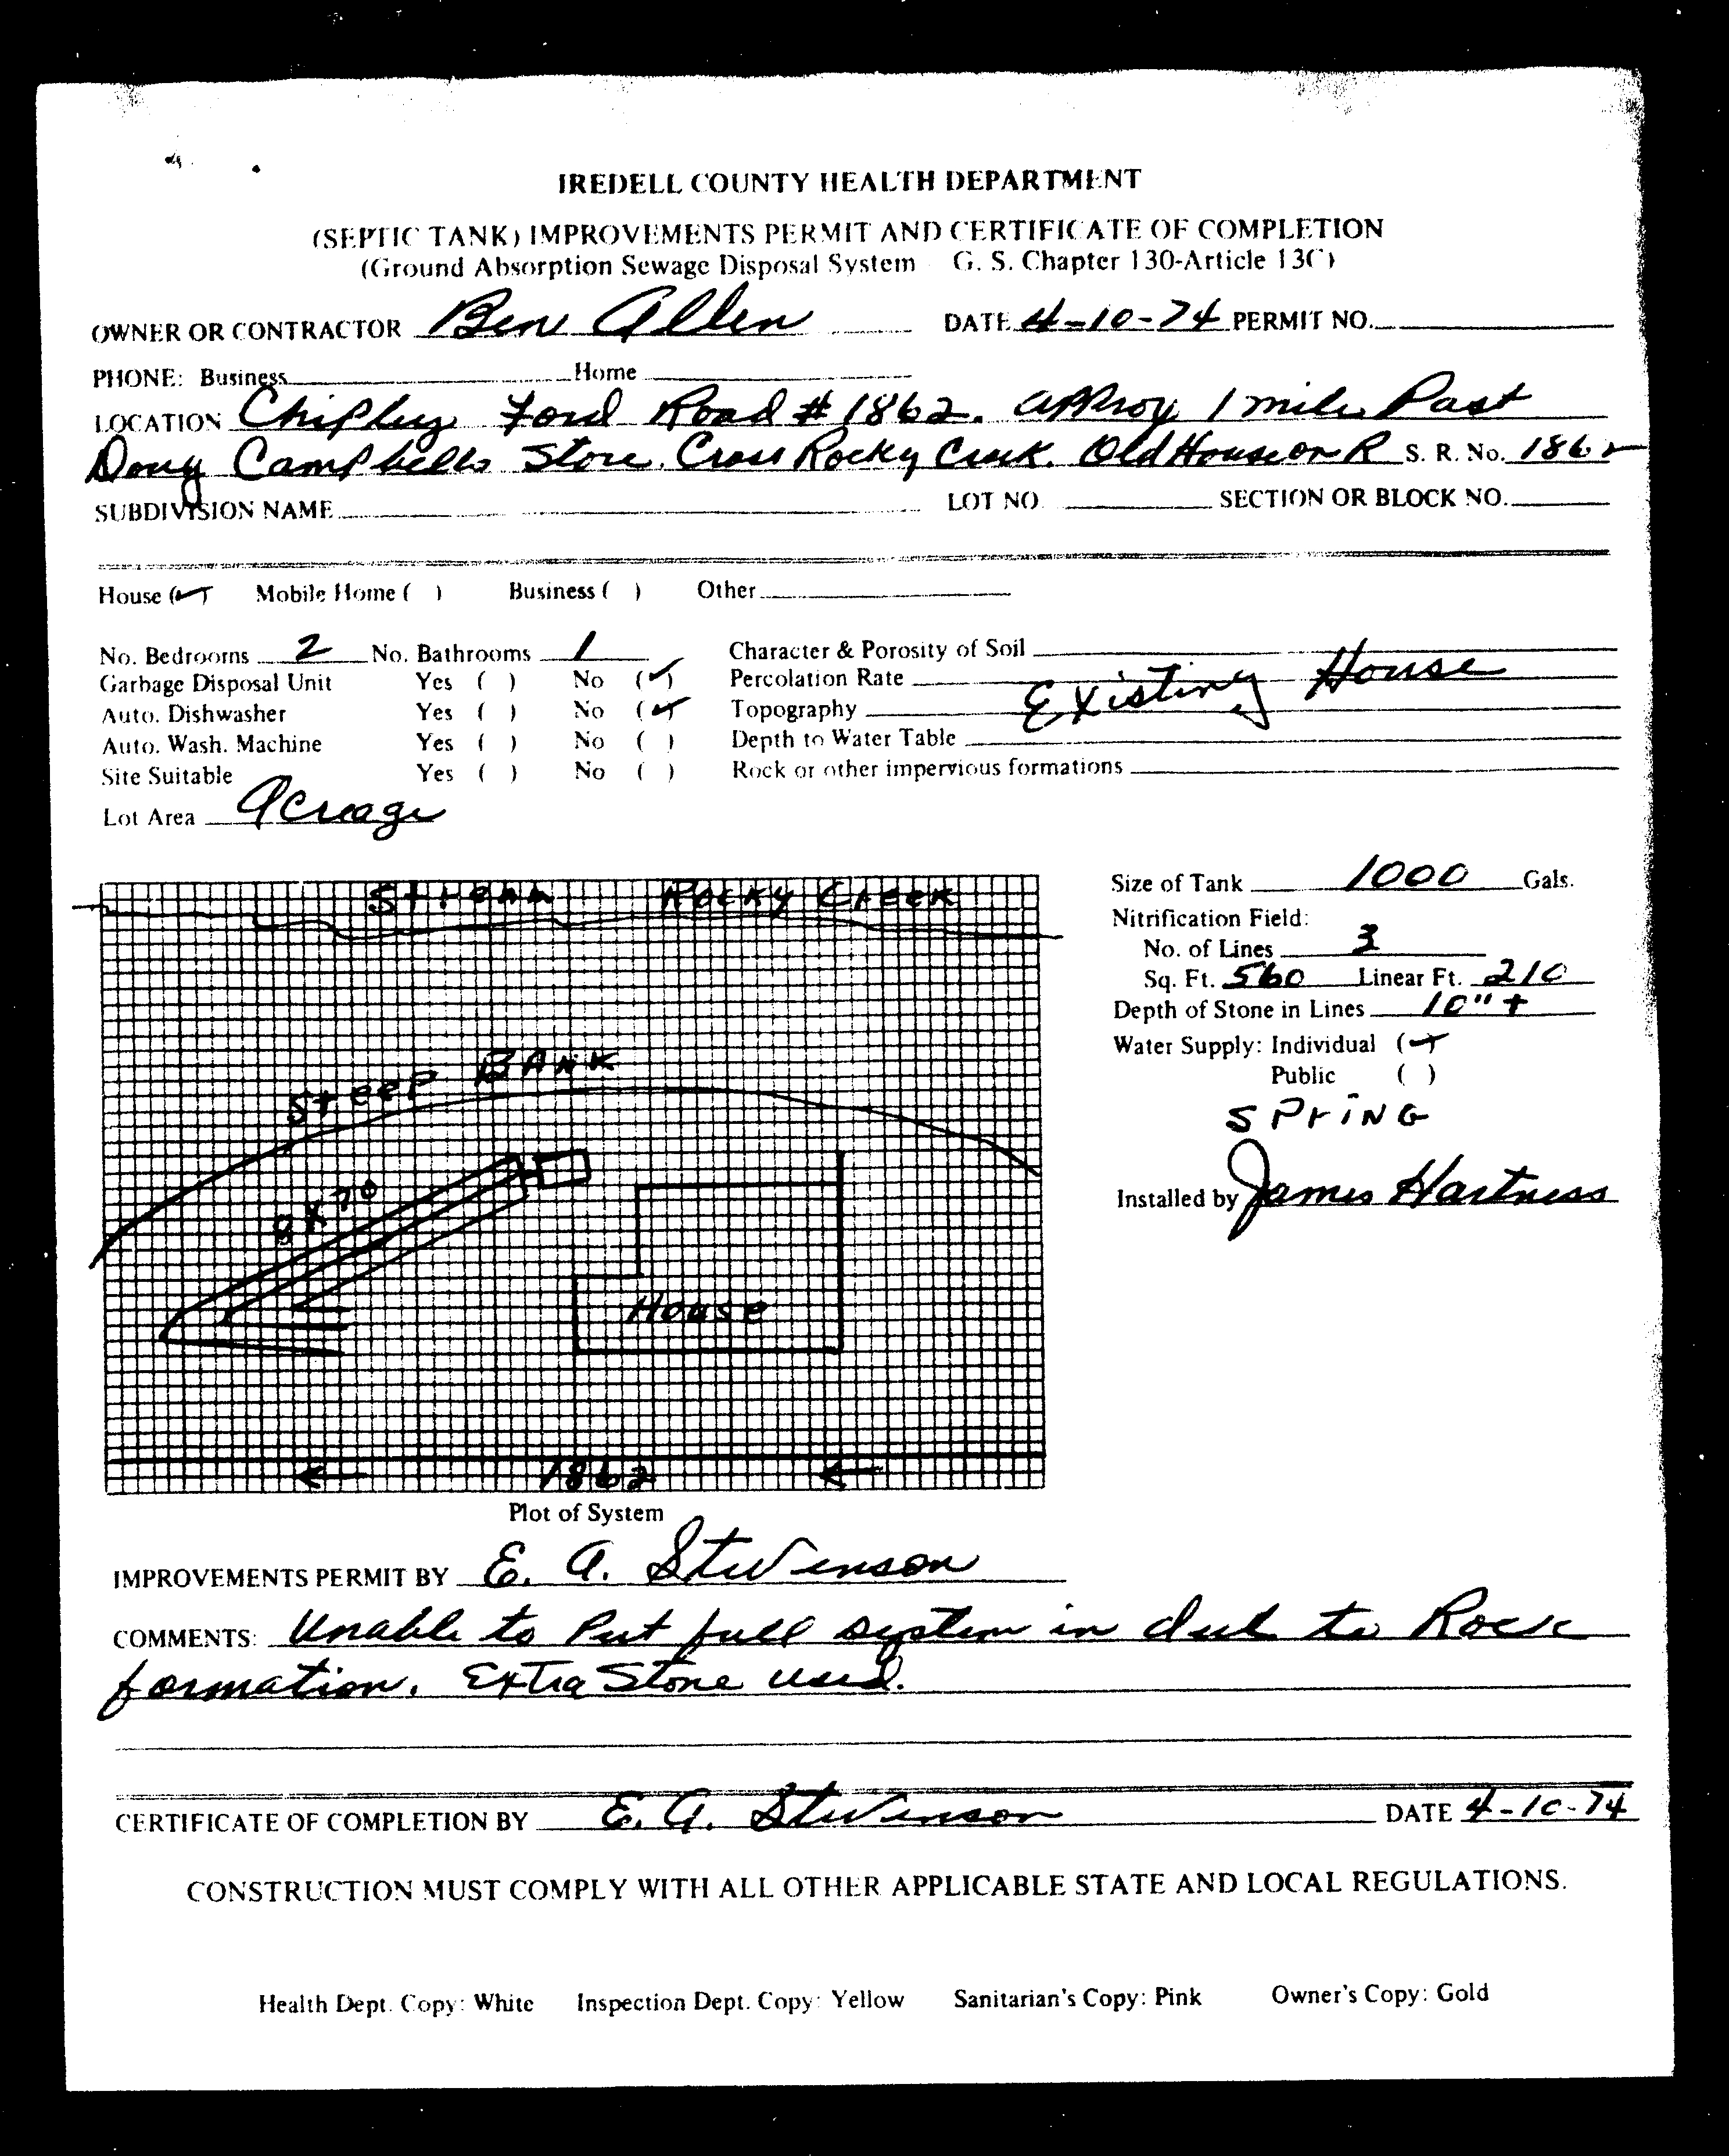 IREDELL COUNTY HEALTH DEPARTMENT
(SEPTIC TANK) IMPROVEMENTS PERMIT AND CERTIFICATE OF COMPLETION
(Ground Absorption Sewage Disposal System G. S. Chapter 130-Article 13C)
OWNER OR CONTRACTOR Ben Allen DATE 4-10-74 PERMIT NO.
PHONE: Business Home
LOCATION Chipley Ford Road # 1862. approx 1 mile Past
Doug Campbells Store. Cross Rocky Creek. Old House on R S. R. No. 1862
SUBDIVISION NAME LOT NO. SECTION OR BLOCK NO.
House (✓) Mobile Home ( ) Business ( ) Other
No. Bedrooms 2 No. Bathrooms 1 Character & Porosity of Soil
Garbage Disposal Unit Yes ( ) No (✓) Percolation Rate Existing House
Auto. Dishwasher Yes ( ) No (✓) Topography
Auto. Wash. Machine Yes ( ) No ( ) Depth to Water Table
Site Suitable Yes ( ) No ( ) Rock or other impervious formations
Lot Area Acreage
Stream Rocky Creek
Steep BANK
8 x 70
House
← 1862 ←
Plot of System
Size of Tank 1000 Gals.
Nitrification Field:
No. of Lines 3
Sq. Ft. 560 Linear Ft. 210
Depth of Stone in Lines 10" +
Water Supply: Individual (✓)
Public ( )
SPriNG
Installed by James Hartness
IMPROVEMENTS PERMIT BY E. A. Stevenson
COMMENTS: Unable to Put full system in due to Rock
formation. Extra Stone used.
CERTIFICATE OF COMPLETION BY E. A. Stevenson DATE 4-10-74
CONSTRUCTION MUST COMPLY WITH ALL OTHER APPLICABLE STATE AND LOCAL REGULATIONS.
Health Dept. Copy: White Inspection Dept. Copy: Yellow Sanitarian's Copy: Pink Owner's Copy: Gold